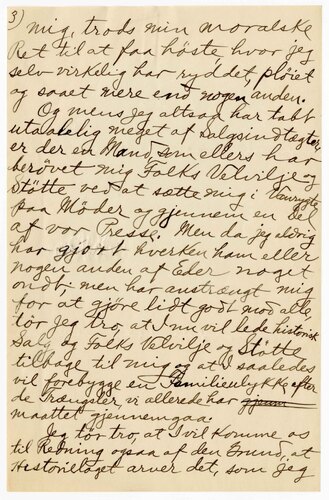 3)
mig, trods min moralske
Ret til at faa høste hvor jeg
selv virkelig har ryddet, pløiet
og saaet mere end nogen anden.
Og mens jeg altsaa har tabt
utalelig meget af salgsindtægter,
er der en Mand, som ellers har
berøvet mig Folks Velvilje og
Støtte ved at sætte mig i Vanrygte
paa Møder og gjennem en Del
af vor Presse. Men da jeg aldrig
har gjort hverken ham eller
nogen anden af Eder noget
ondt, men har anstrængt mig
for at gjøre lidt godt mod alle,
tør jeg tro, at I nu vil lede historisk
Salg og Folks Velvilje og Støtte
tilbage til mig og at I saaledes
vil forebygge en Familieulykke efter
de Trængsler, vi allerede har gjenem
maattet gjennemgaa.
Jeg tør tro, at I vil komme os
til Redning ogsaa af den Grund, at
Historielaget arver det, som jeg